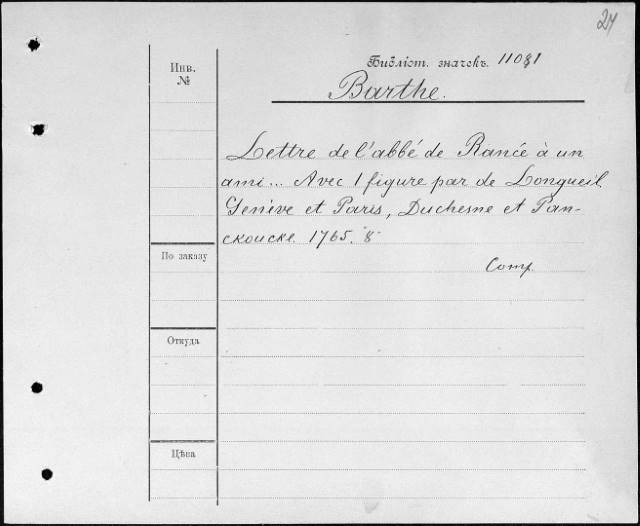 24
Инв.
№
Библіот. значекъ. 11081
Barthe.
Lettre de l'abbé de Rancé à un
ami... Avec 1 figure par de Longueil.
Genève et Paris, Duchesne et Pan-
ckoucke. 1765. 8°
По заказу
Comp.
Откуда
Цѣна